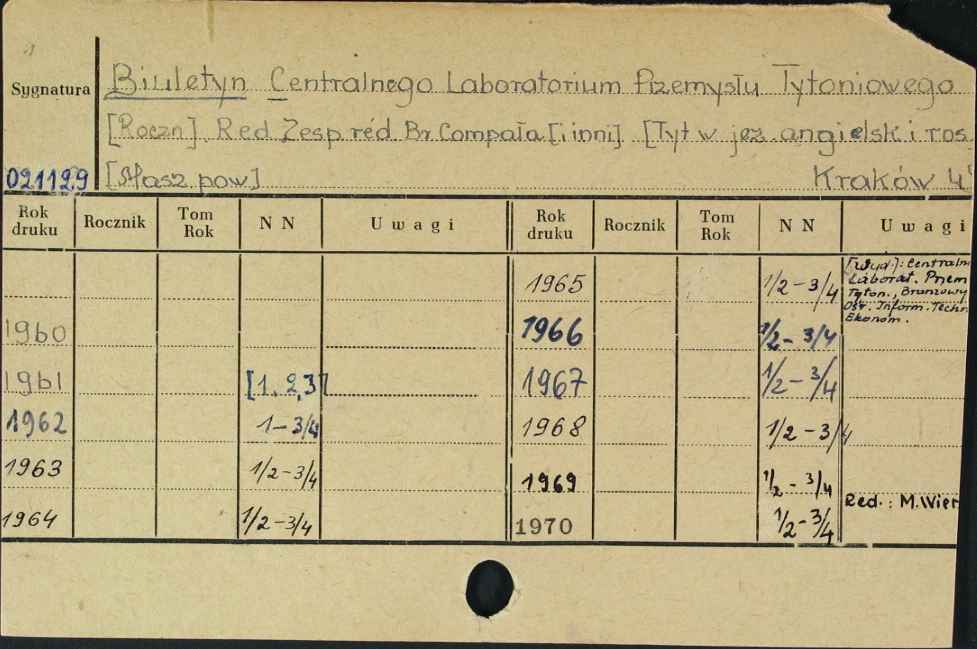 Sygnatura
Biuletyn Centralnego Laboratorium Przemysłu Tytoniowego
[Roczn]. Red Zesp. red Br. Compała [i inni]. [Tyt w jęz angielsk i ros.
021129 [Masz. pow] Kraków 4°
Rok druku Rocznik Tom Rok N N Uwagi Rok druku Rocznik Tom Rok N N Uwagi
1965 1/2 – 3/4 [Wyd.]: Centraln
Laborat. Przem
Tyton., Branżowy
Ośr. Inform. Techn
Ekonom.
1960 1966 1/2 – 3/4
1961 [1, 2, 3] 1967 1/2 – 3/4
1962 1 – 3/4 1968 1/2 – 3/4
1963 1/2 – 3/4 1969 1/2 – 3/4
Red. : M. Wier
1964 1/2 – 3/4 1970 1/2 – 3/4